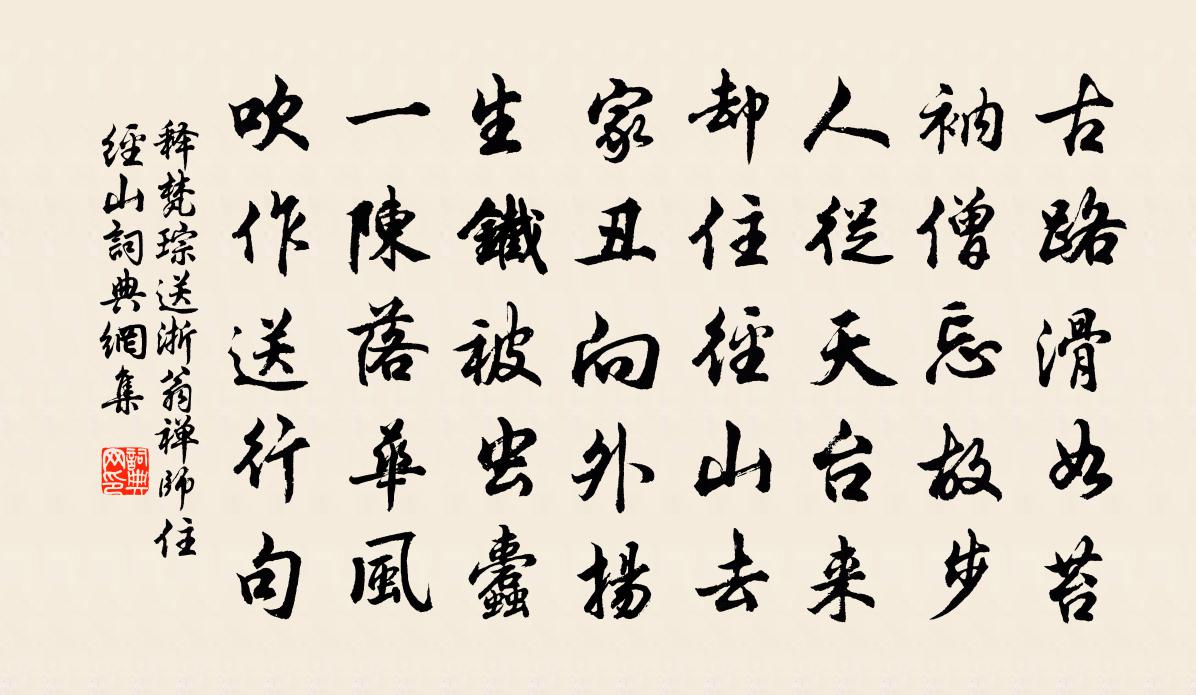 古路滑如苔
衲僧忘故步
人從天台来
却住徑山去
家丑向外揚
生鐵被虫蠹
一陳落華風
吹作送行句
释梵琮送浙翁禅師住
經山詞典網集
詞典
网印